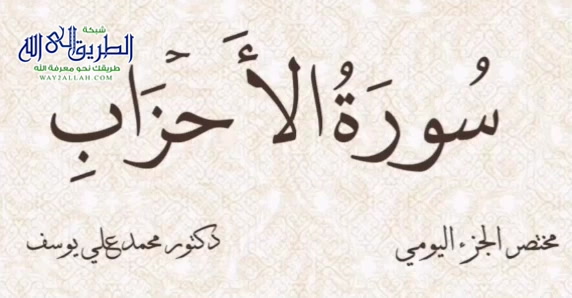 شبكة
الطريق إلى الله
طريقك نحو معرفة الله
WAY2ALLAH.COM
سُورَةُ الأَحزَابِ
مختصر الجزء اليومي
دكتور محمد علي يوسف